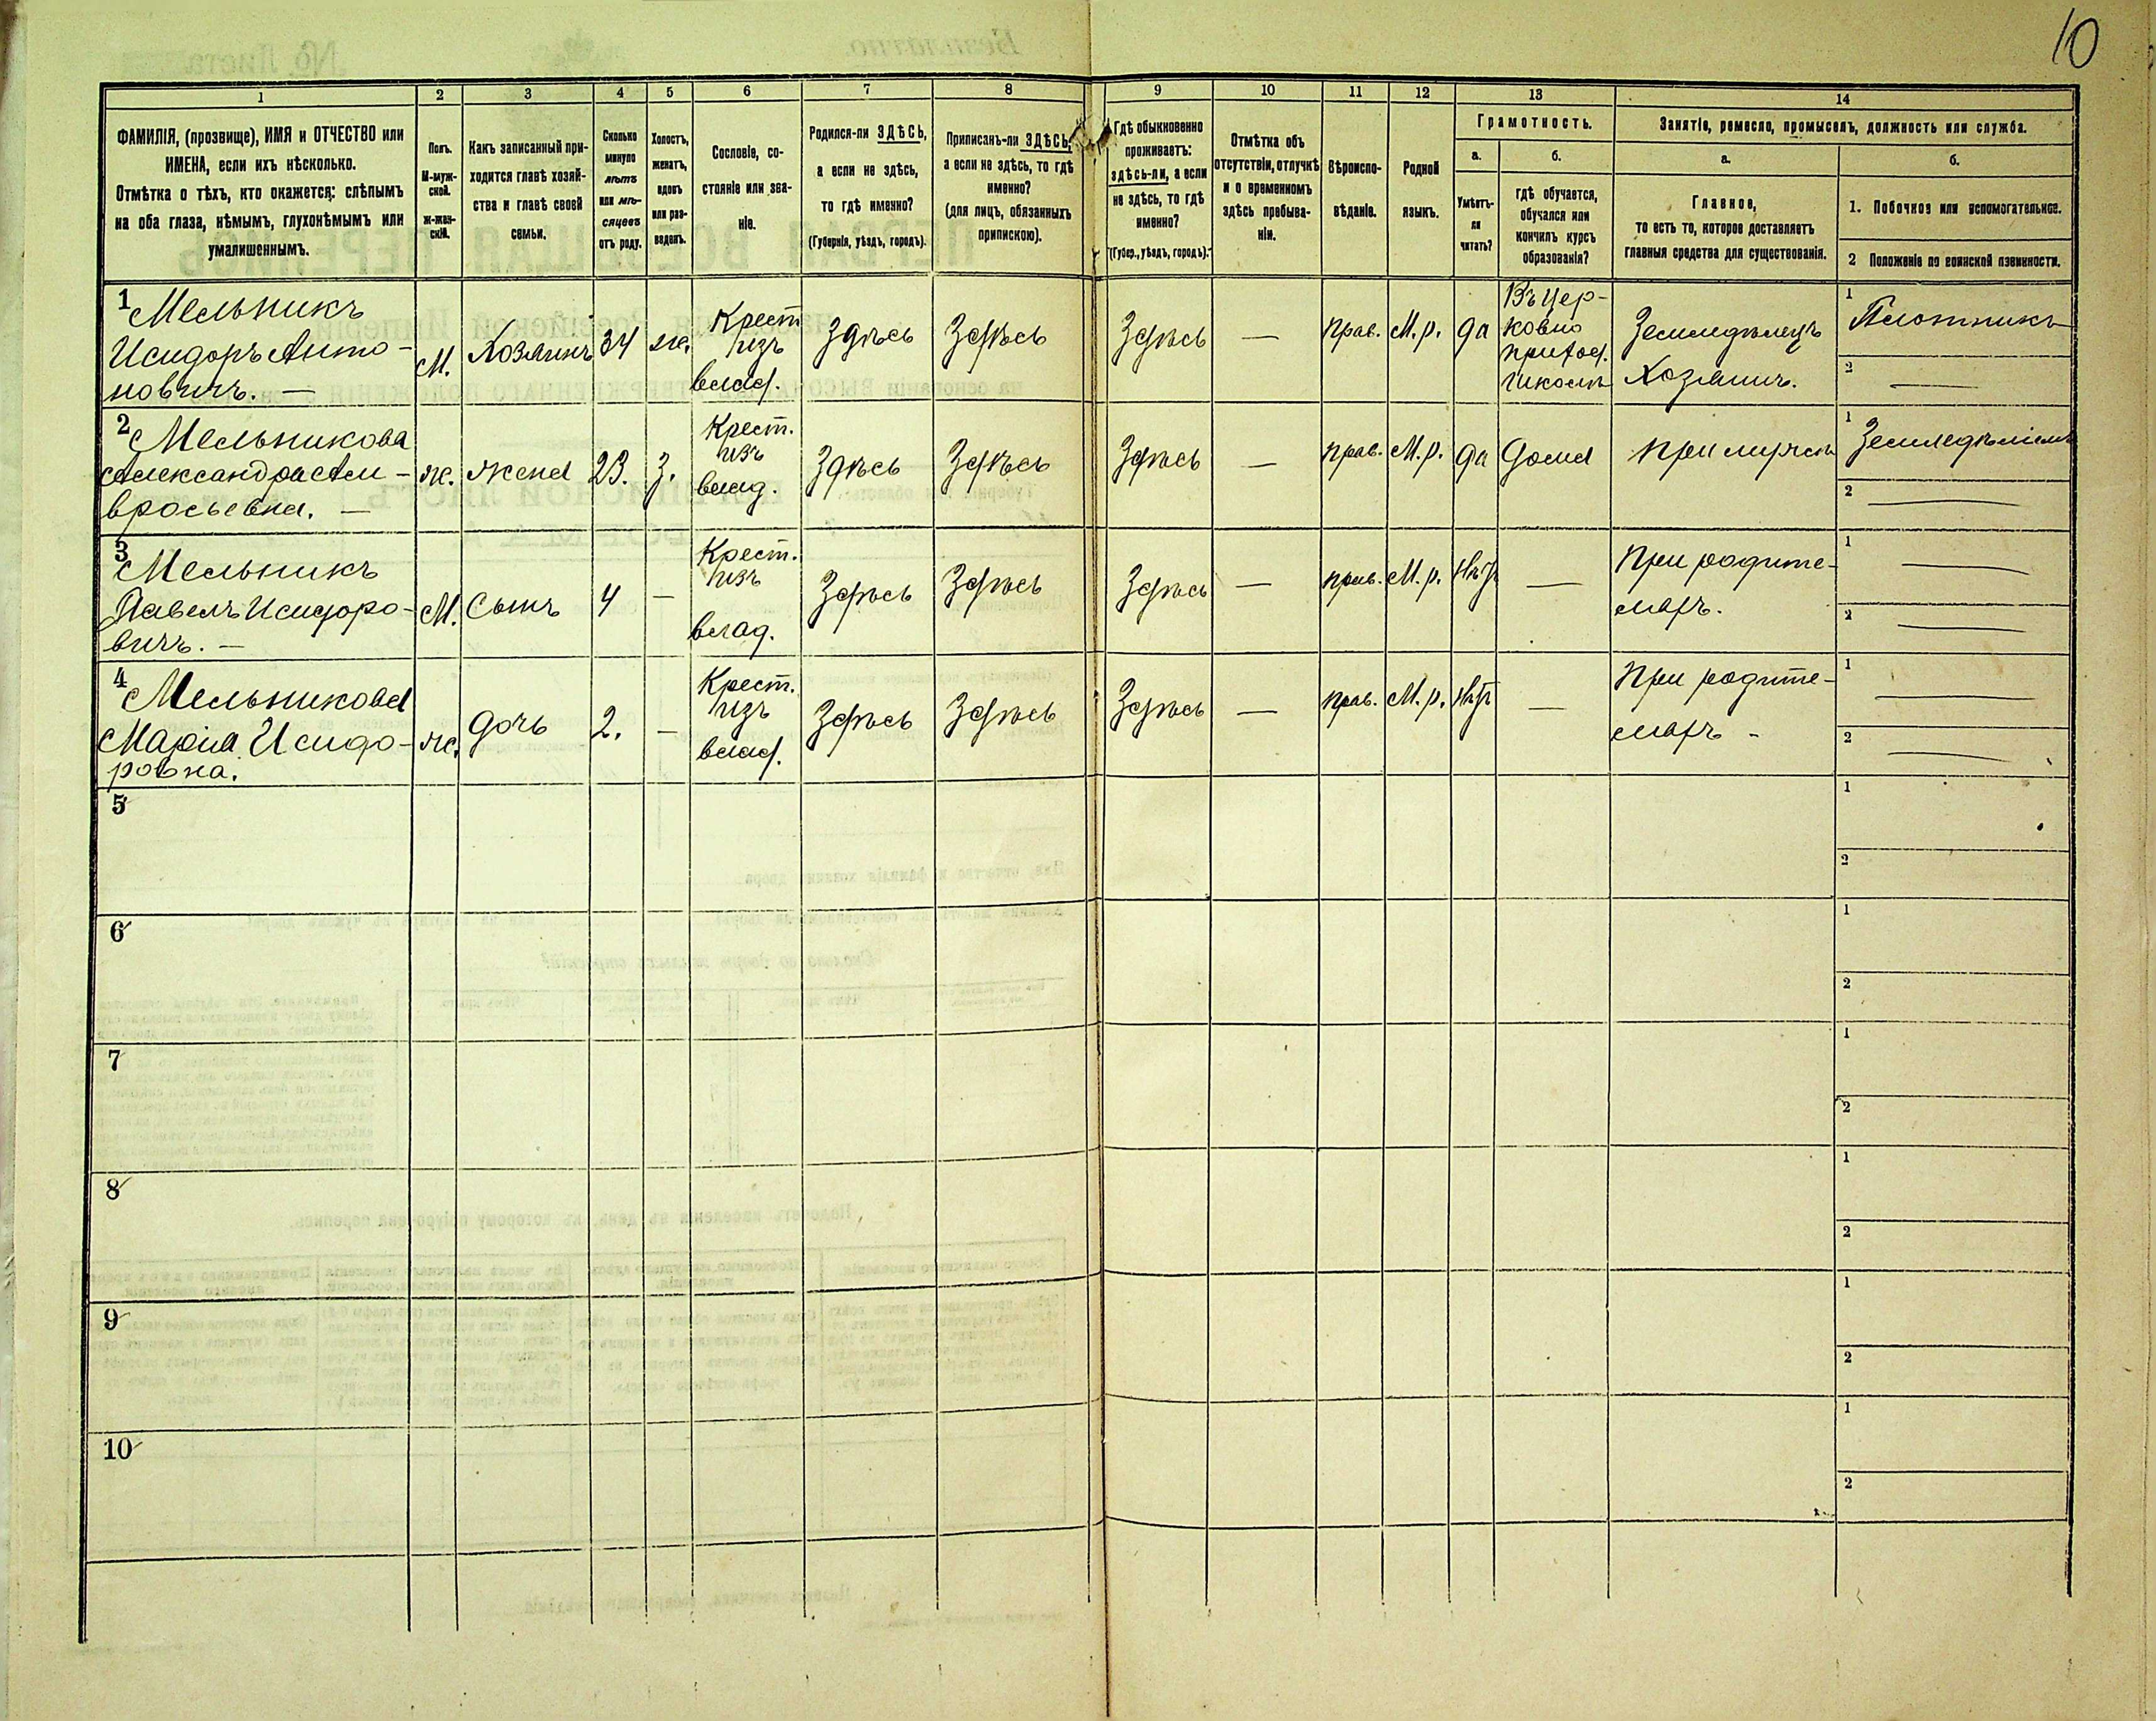 10
1 2 3 4 5 6 7 8 9 10 11 12 13 14
ФАМИЛІЯ, (прозвище), ИМЯ и ОТЧЕСТВО или
ИМЕНА, если ихъ нѣсколько.
Отмѣтка о тѣхъ, кто окажется: слѣпымъ
на оба глаза, нѣмымъ, глухонѣмымъ или
умалишеннымъ.
Полъ.
М-муж-
ской.
ж-жен-
скій.
Какъ записанный при-
ходится главѣ хозяй-
ства и главѣ своей
семьи.
Сколько
минуло
лѣтъ
или мѣ-
сяцевъ
отъ роду.
Холостъ,
женатъ,
вдовъ
или раз-
веденъ.
Сословіе, со-
стояніе или зва-
ніе.
Родился-ли ЗДѢСЬ,
а если не здѣсь,
то гдѣ именно?
(Губернія, уѣздъ, городъ).
Приписанъ-ли ЗДѢСЬ,
а если не здѣсь, то гдѣ
именно?
(для лицъ, обязанныхъ
припискою).
Гдѣ обыкновенно
проживаетъ:
здѣсь-ли, а если
не здѣсь, то гдѣ
именно?
(Губер., уѣздъ, городъ).
Отмѣтка объ
отсутствіи, отлучкѣ
и о временномъ
здѣсь пребыва-
ніи.
Вѣроиспо-
вѣданіе.
Родной
языкъ.
Грамотность.
а.
б.
Умѣетъ-
ли
читать?
гдѣ обучается,
обучался или
кончилъ курсъ
образованія?
Занятіе, ремесло, промыселъ, должность или служба.
а.
б.
Главное,
то есть то, которое доставляетъ
главныя средства для существованія.
1. Побочное или вспомогательное.
2 Положеніе по воинской повинности.
1 Мельникъ
Исидоръ Анто-
новичъ. —
М.
Хозяинъ
34
ж.
Крест
изъ
влад.
Здѣсь
Здѣсь
Здѣсь
—
прав.
М.р.
да
Въ цер-
ковно
приход.
школѣ
Земледѣлецъ
Хозяинъ.
1 Плотникъ
2 —
2 Мельникова
Александра Ам-
вросьевна. —
ж.
жена
23.
З.
Крест.
изъ
влад.
Здѣсь
Здѣсь
Здѣсь
—
прав.
М.р.
да
дома
при мужѣ
1 Земледѣліемъ
2 —
3 Мельникъ
Павелъ Исидоро-
вичъ. —
М.
Сынъ
4
—
Крест.
изъ
влад.
Здѣсь
Здѣсь
Здѣсь
—
прав.
М.р.
нѣтъ
—
При родите-
ляхъ.
1 —
2 —
4 Мельникова
Марія Исидо-
ровна.
ж.
дочь
2.
—
Крест.
изъ
влад.
Здѣсь
Здѣсь
Здѣсь
—
прав.
М.р.
нѣтъ
—
При родите-
ляхъ -
1 —
2 —
5
1
2
6
1
2
7
1
2
8
1
2
9
1
2
10
1
2